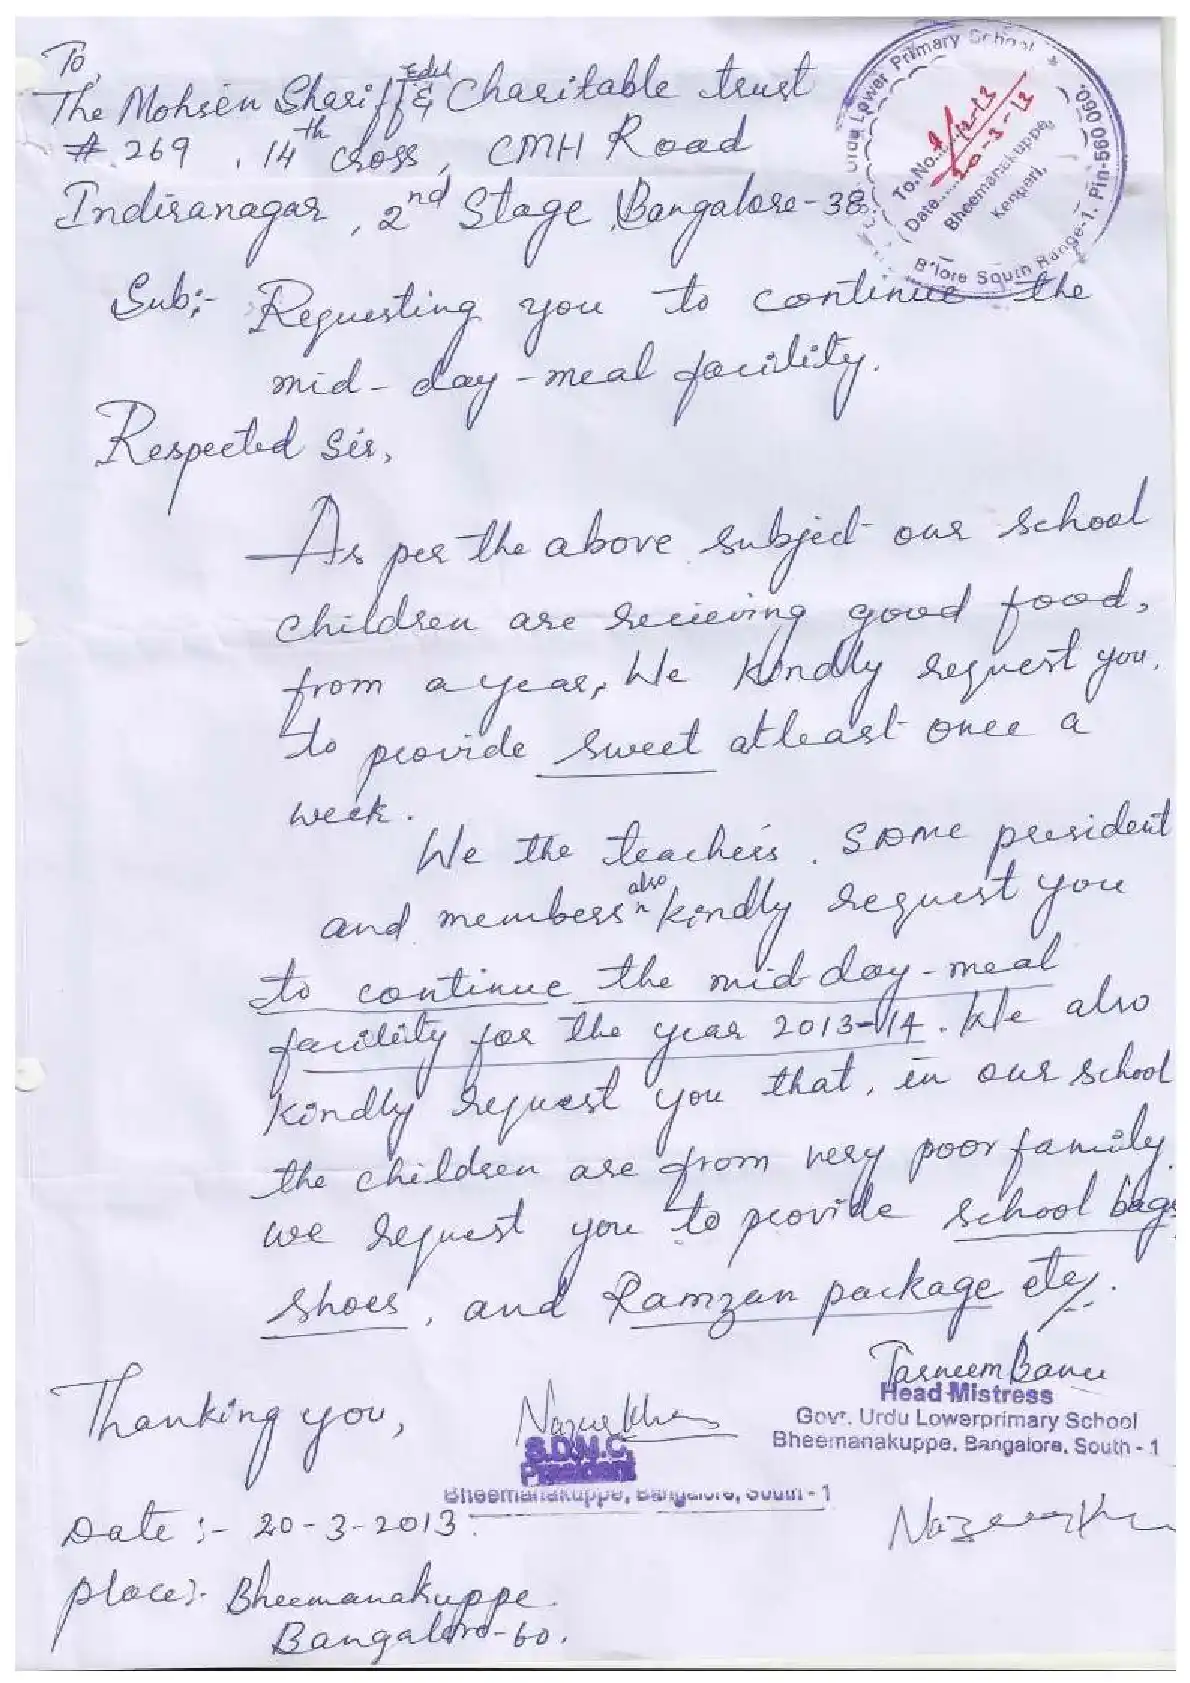 To,
The Mohsen Shariff Edul & Charitable trust
# 269 , 14th cross, CMH Road
Indiranagar, 2nd Stage, Bangalore-38
Urdu Lower Primary School
To.No. /12-13
Date 20-3-13
Bheemanakuppe,
Kengeri,
B'lore South Range-1. Pin-560 060.
Sub:- Requesting you to continue the
mid-day-meal facility.
Respected Sir,
As per the above subject our school
children are recieving good food,
from a year, We kindly request you.
to provide sweet atleast once a
week.
We the teachers. SDMC president
and members also kindly request you
to continue the mid day-meal
facility for the year 2013-14. We also
kindly request you that, in our school
the children are from very poor family.
we request you to provide school bags
shoes, and Ramzan package etc/.
Tasneem Banu
Head Mistress
Govt. Urdu Lowerprimary School
Bheemanakuppe, Bangalore, South - 1
Thanking you,
S.D.M.C.
President
Bheemanakuppe, Bangalore, South - 1
Date :- 20-3-2013.
place:- Bheemanakuppe.
Bangalore-60.